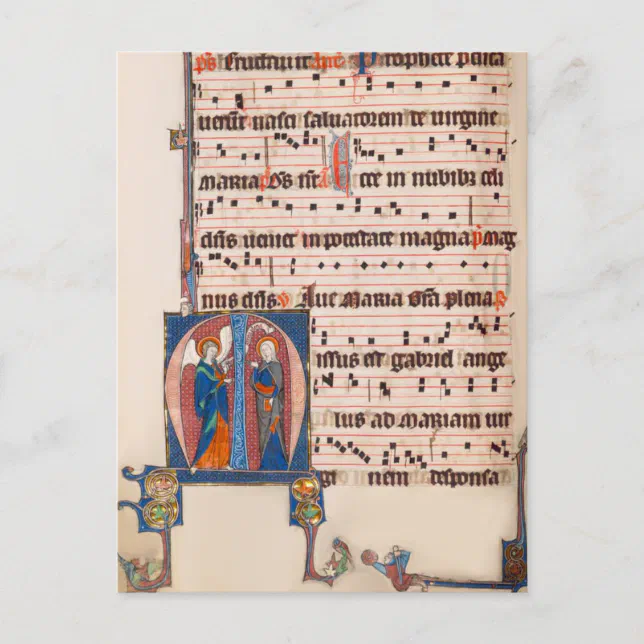 p̄s Eructauit Prophete predica
uerūt nasci saluatorem de uirgine
maria p̄s Ecce in nubibz celi
dn̄s ueniet in potestate magna p̄ mag
nus dn̄s ꝟ Aue maria grā plena p̄
issus est gabriel ange
lus ad mariam uir
gi nem desponsa